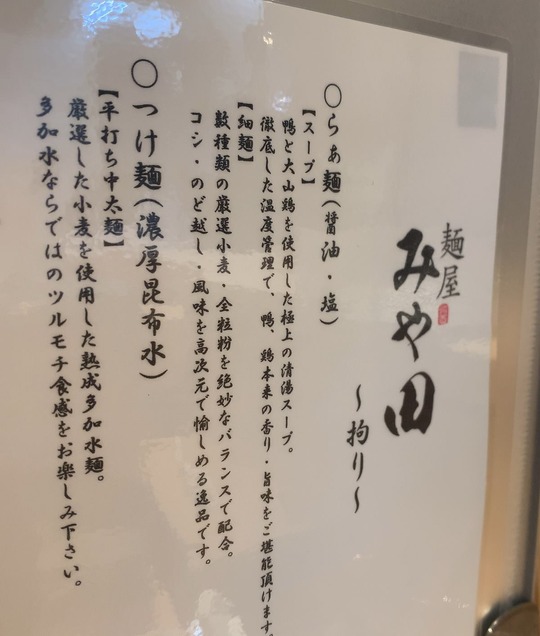 麺屋
みや田
〜拘り〜
〇らぁ麺（醤油・塩）
【スープ】
鴨と大山鶏を使用した極上の清湯スープ。
徹底した温度管理で、鴨、鶏本来の香り・旨味をご堪能頂けます。
【細麺】
数種類の厳選小麦・全粒粉を絶妙なバランスで配合。
コシ・のど越し・風味を高次元で愉しめる逸品です。
〇つけ麺（濃厚昆布水）
【平打ち中太麺】
厳選した小麦を使用した熟成多加水麺。
多加水ならではのツルモチ食感をお楽しみ下さい。